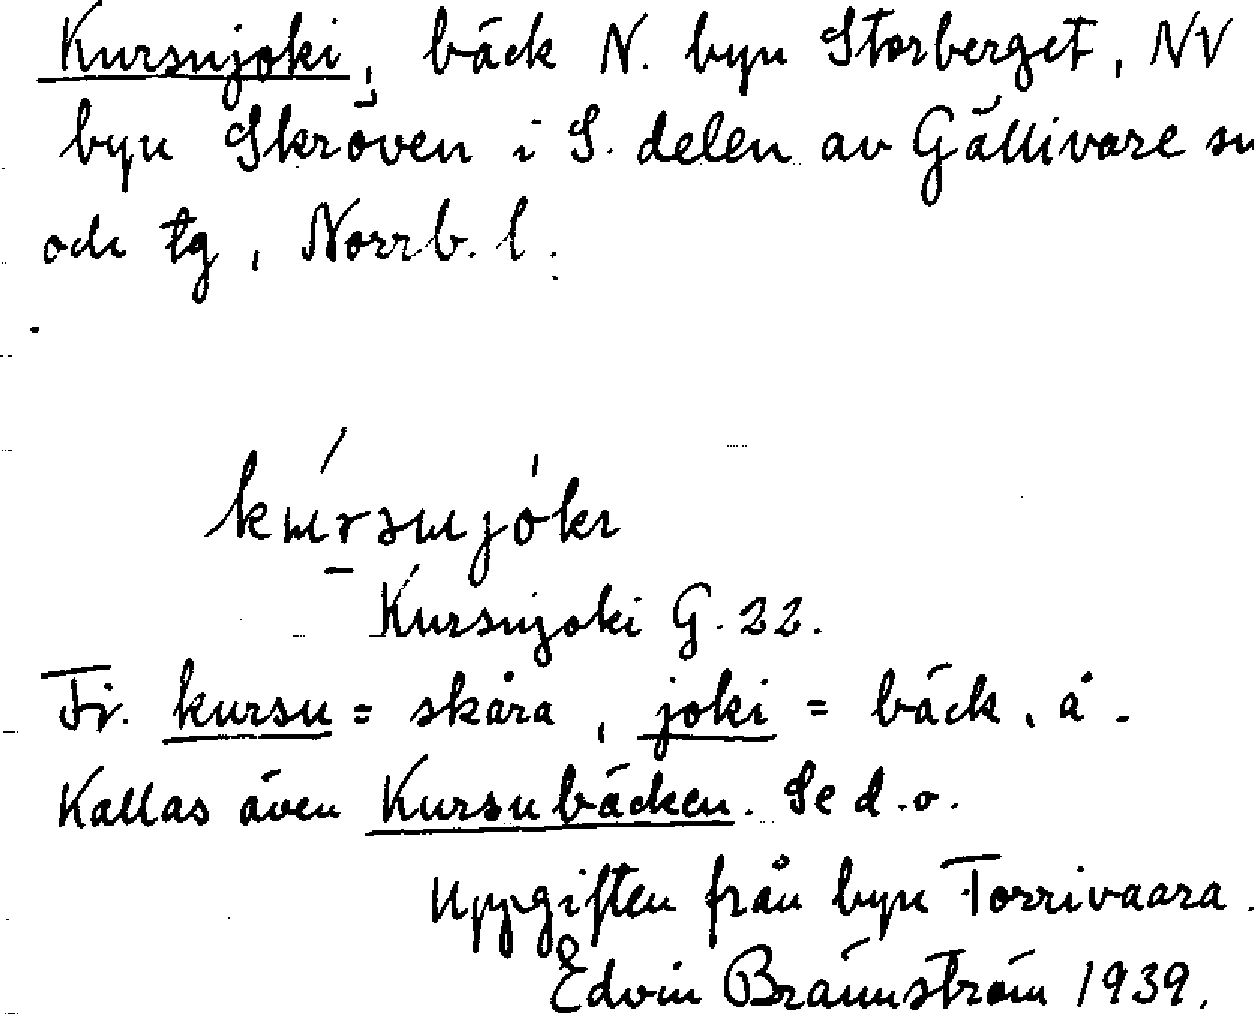 Kursujoki, bäck N. byn Storberget, NV
byn Skröven i S. delen av Gällivare sn
och tg, Norrb. l.
kúrsujȯkı
Kursujoki G. 22.
Fi. kursu = skåra, joki = bäck, å.
Kallas även Kursubäcken. Se d. o.
Uppgiften från byn Torrivaara.
Edvin Brännström 1939.